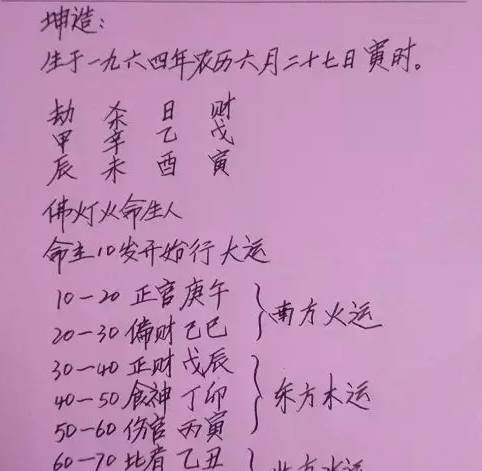 坤造：
生于一九六四年农历六月二十七日寅时。
劫 杀 日 财
甲 辛 乙 戊
辰 未 酉 寅
佛灯火命生人
命主10岁开始行大运
10－20 正官 庚午
20－30 偏财 己巳 南方火运
30－40 正财 戊辰
40－50 食神 丁卯 东方木运
50－60 伤官 丙寅
60－70 比肩 乙丑 北方水运